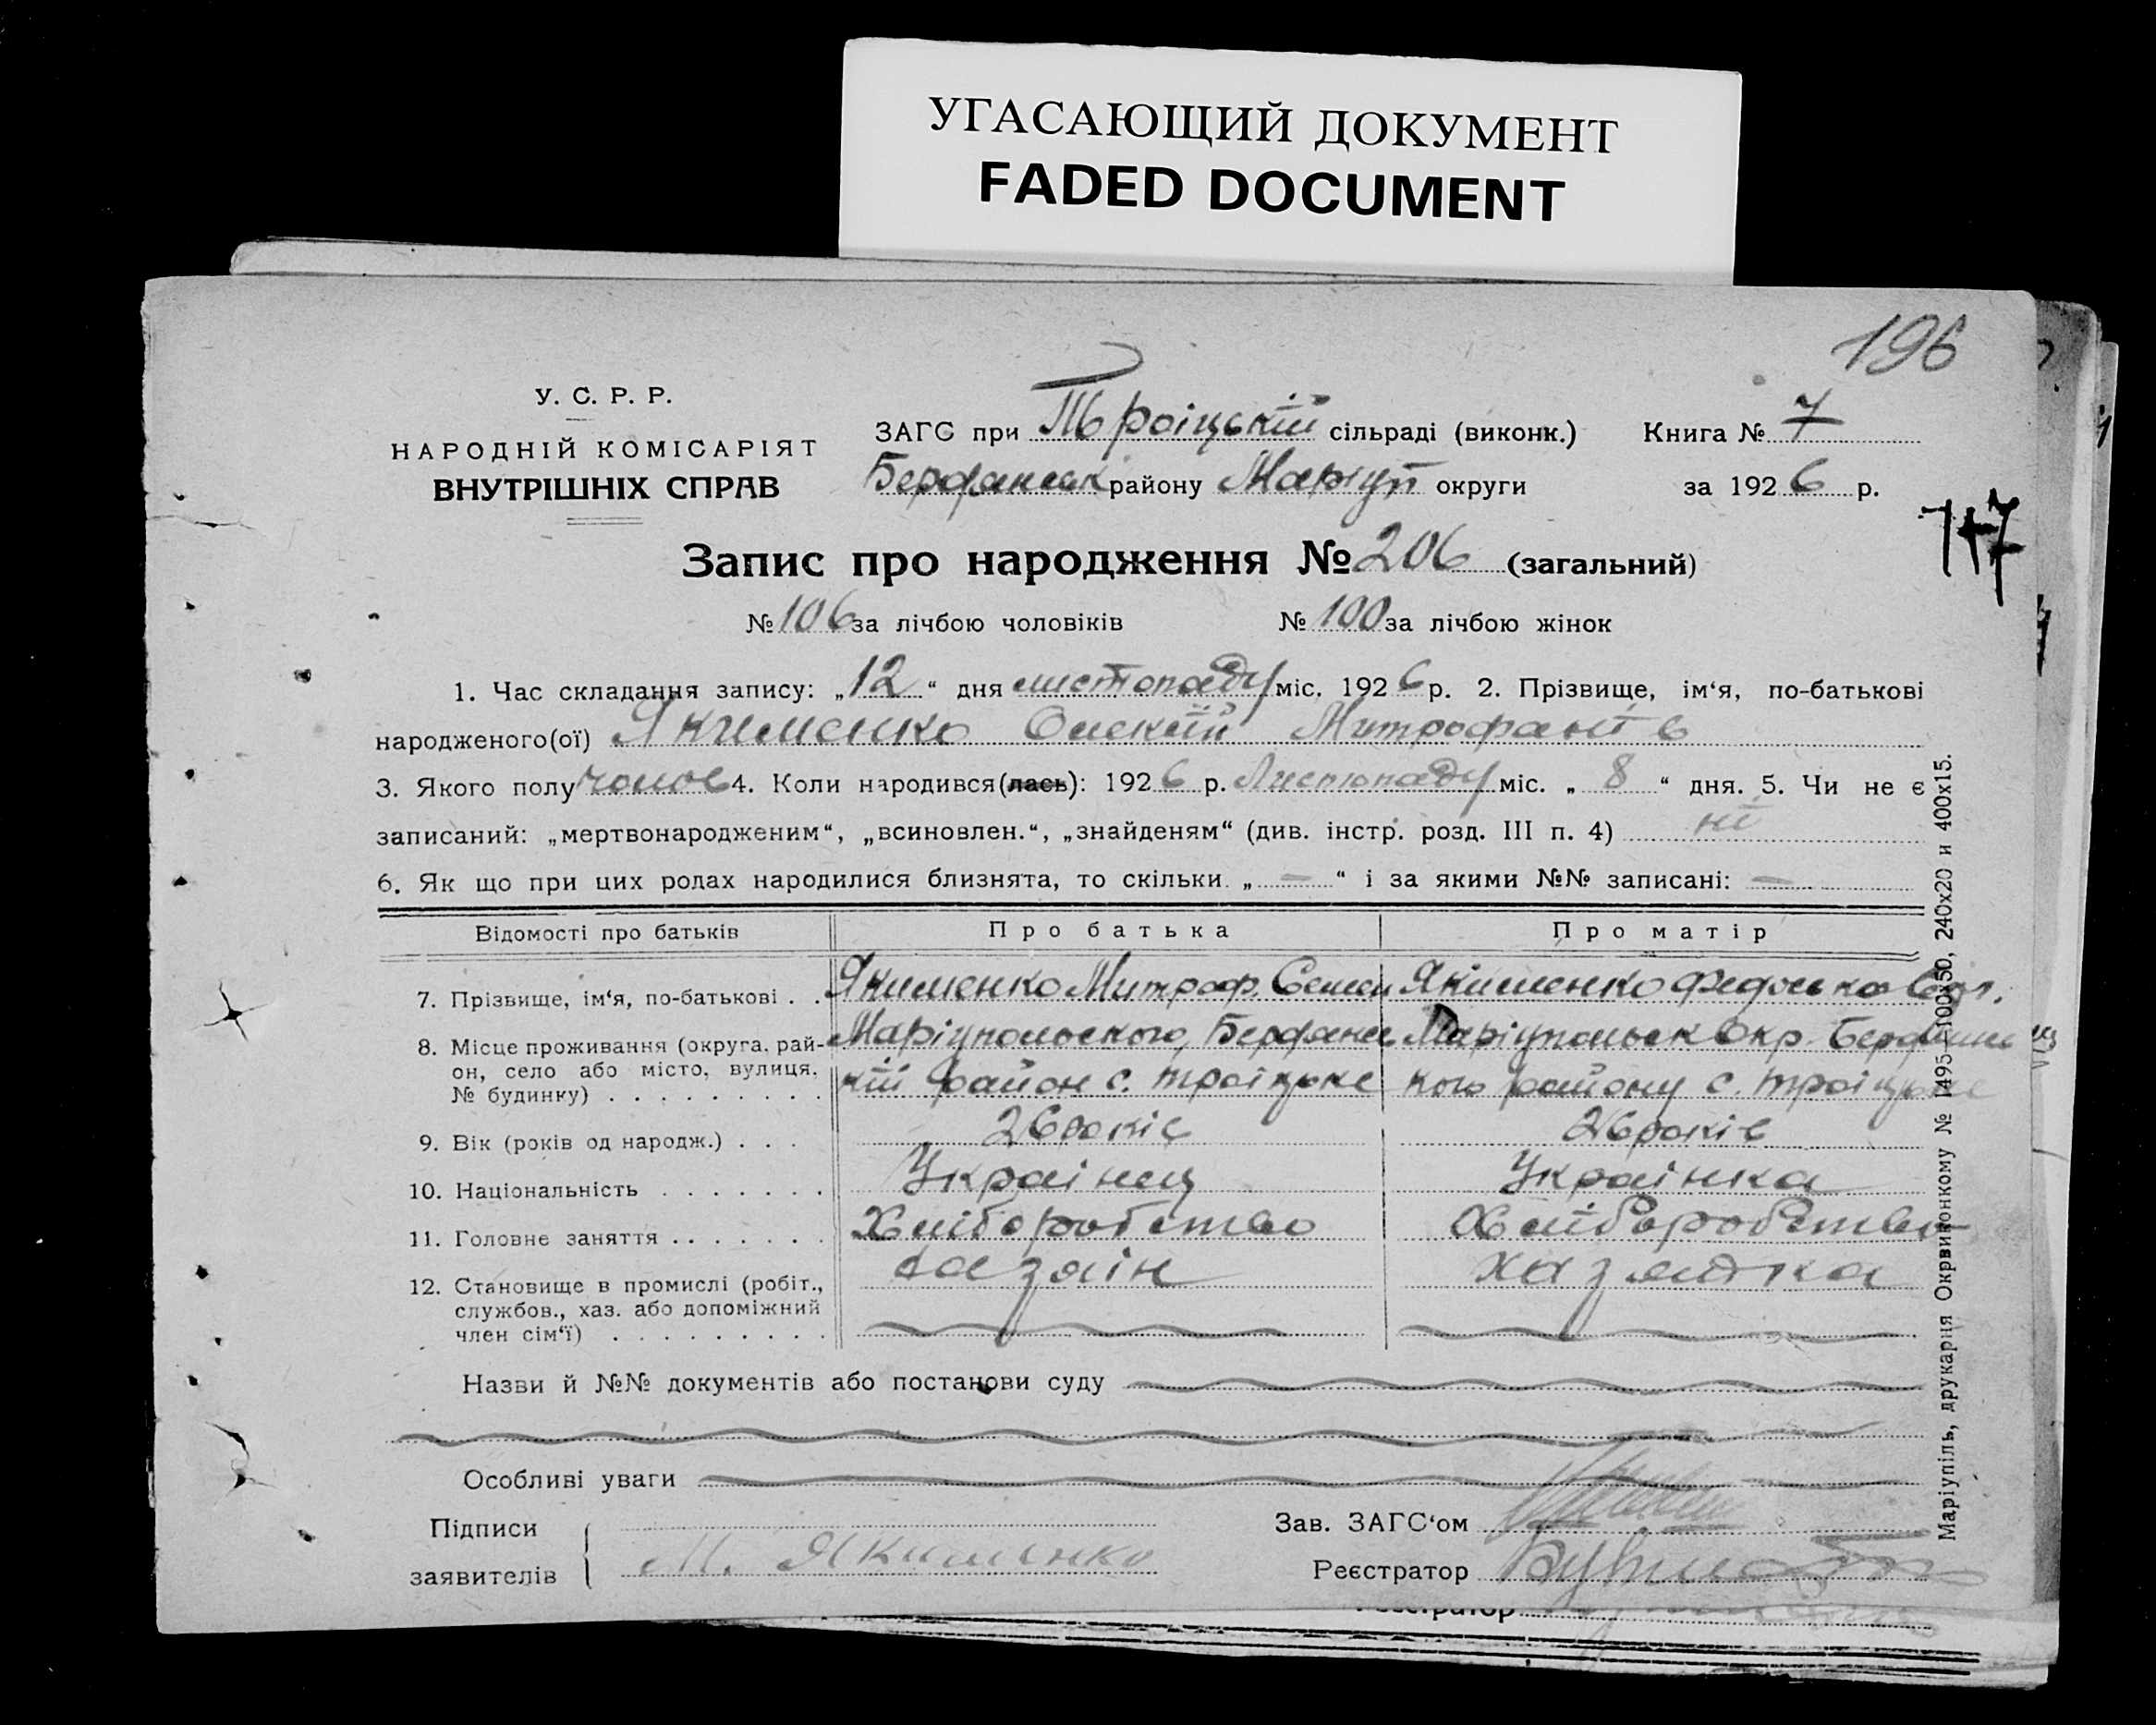 УГАСАЮЩИЙ ДОКУМЕНТ
FADED DOCUMENT
196
У. С. Р. Р.
НАРОДНІЙ КОМІСАРІЯТ
ВНУТРІШНІХ СПРАВ
ЗАГС при Троіцькій сільраді (виконк.) Книга № 7
Бердянськ району Маріуп округи за 1926 р.
Запис про народження № 206 (загальний)
№ 106 за лічбою чоловіків № 100 за лічбою жінок
1. Час складання запису: „12“ дня листопаду міс. 1926 р. 2. Прізвище, ім‘я, по-батькові
народженого(ої) Якименко Олексій Митрофанів
3. Якого полу чолов 4. Коли народився(лась): 1926 р. Листопаду міс. „ 8 “ дня. 5. Чи не є
записаний: „мертвонародженим“, „всиновлен.“, „знайденям“ (див. інстр. розд. III п. 4) ні
6. Як що при цих родах народилися близнята, то скільки „ — “ і за якими №№ записані: —
Відомості про батьків Про батька Про матір
7. Прізвище, ім‘я, по-батькові . . Якименко Митроф. Семен Якименко Федоська
8. Місце проживання (округа, рай-
он, село або місто, вулиця,
№ будинку) . . . . . . . . .
Маріупольского, Бердянсь
кій район с. троіцьке
Маріупольск Окр. Бердянс
кого району с. троіцьке
9. Вік (років од народж.) . . . 26 років 26 років
10. Національність . . . . . . . Украінец Украінка
11. Головне заняття . . . . . . . Хліборобство Хліборобство
12. Становище в промислі (робіт.,
службов., хаз. або допоміжний
член сім‘ї) . . . . . . . . .
хазяін хазяйка
Назви й №№ документів або постанови суду
Особливі уваги
Підписи
заявителів
М. Якименко
Зав. ЗАГС‘ом
Реєстратор
Реєстратор
Маріупіль, друкарня Окрвиконкому № 1495-100х50, 240х20 и 400х15.